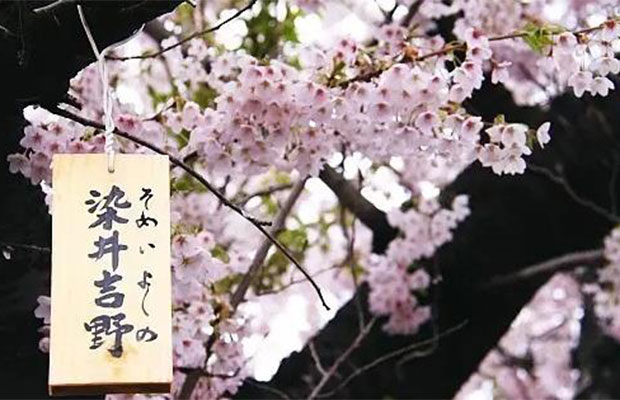 染井吉野
そめいよしの